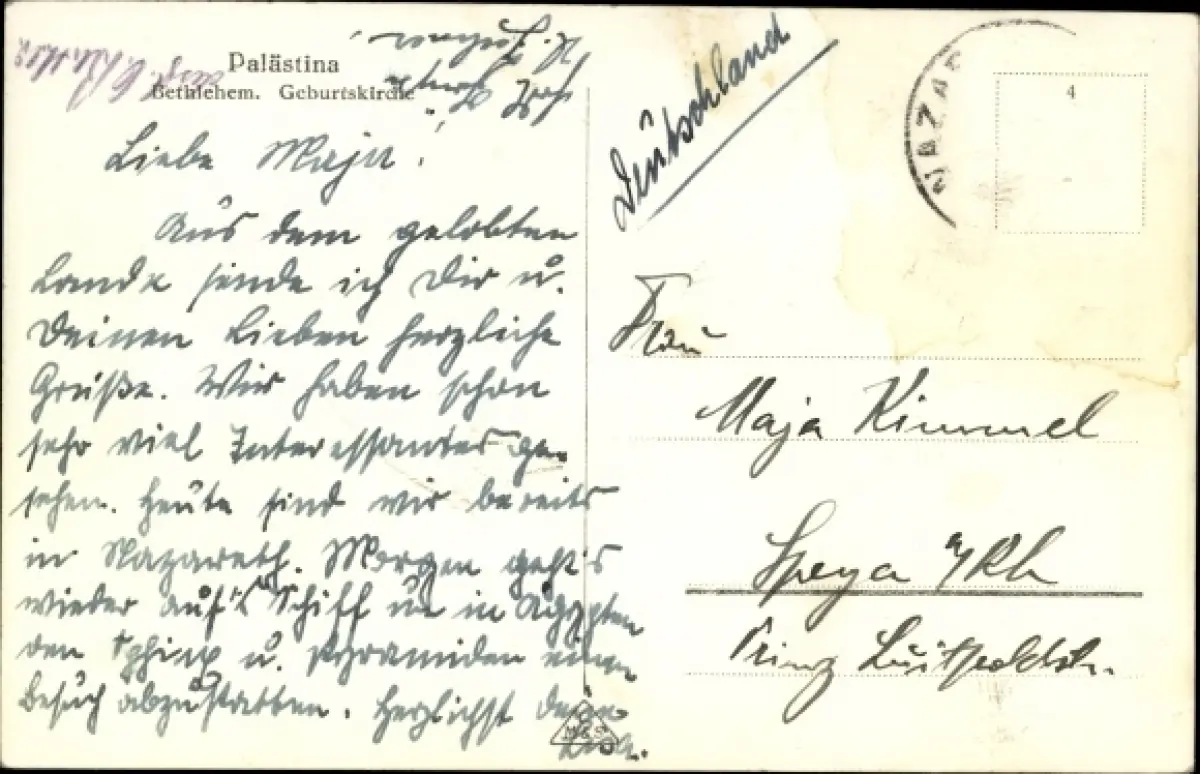 Palästina
Bethlehem. Geburtskirche
Liebe Maja!
Aus dem gelobten
Lande sende ich Dir u.
Deinen Lieben herzliche
Grüße. Wir haben schon
sehr viel Interessantes ge-
sehen. Heute sind wir bereits
in Nazareth. Morgen geht's
wieder auf's Schiff um in Ägypten
den Sphinx u. Pyramiden einen
Besuch abzustatten. Herzlichst Deine
Deutschland
NAZAR
4
Frau
Maja Kimmel
Speyer a/Rh
Prinz Luitpoldstr.